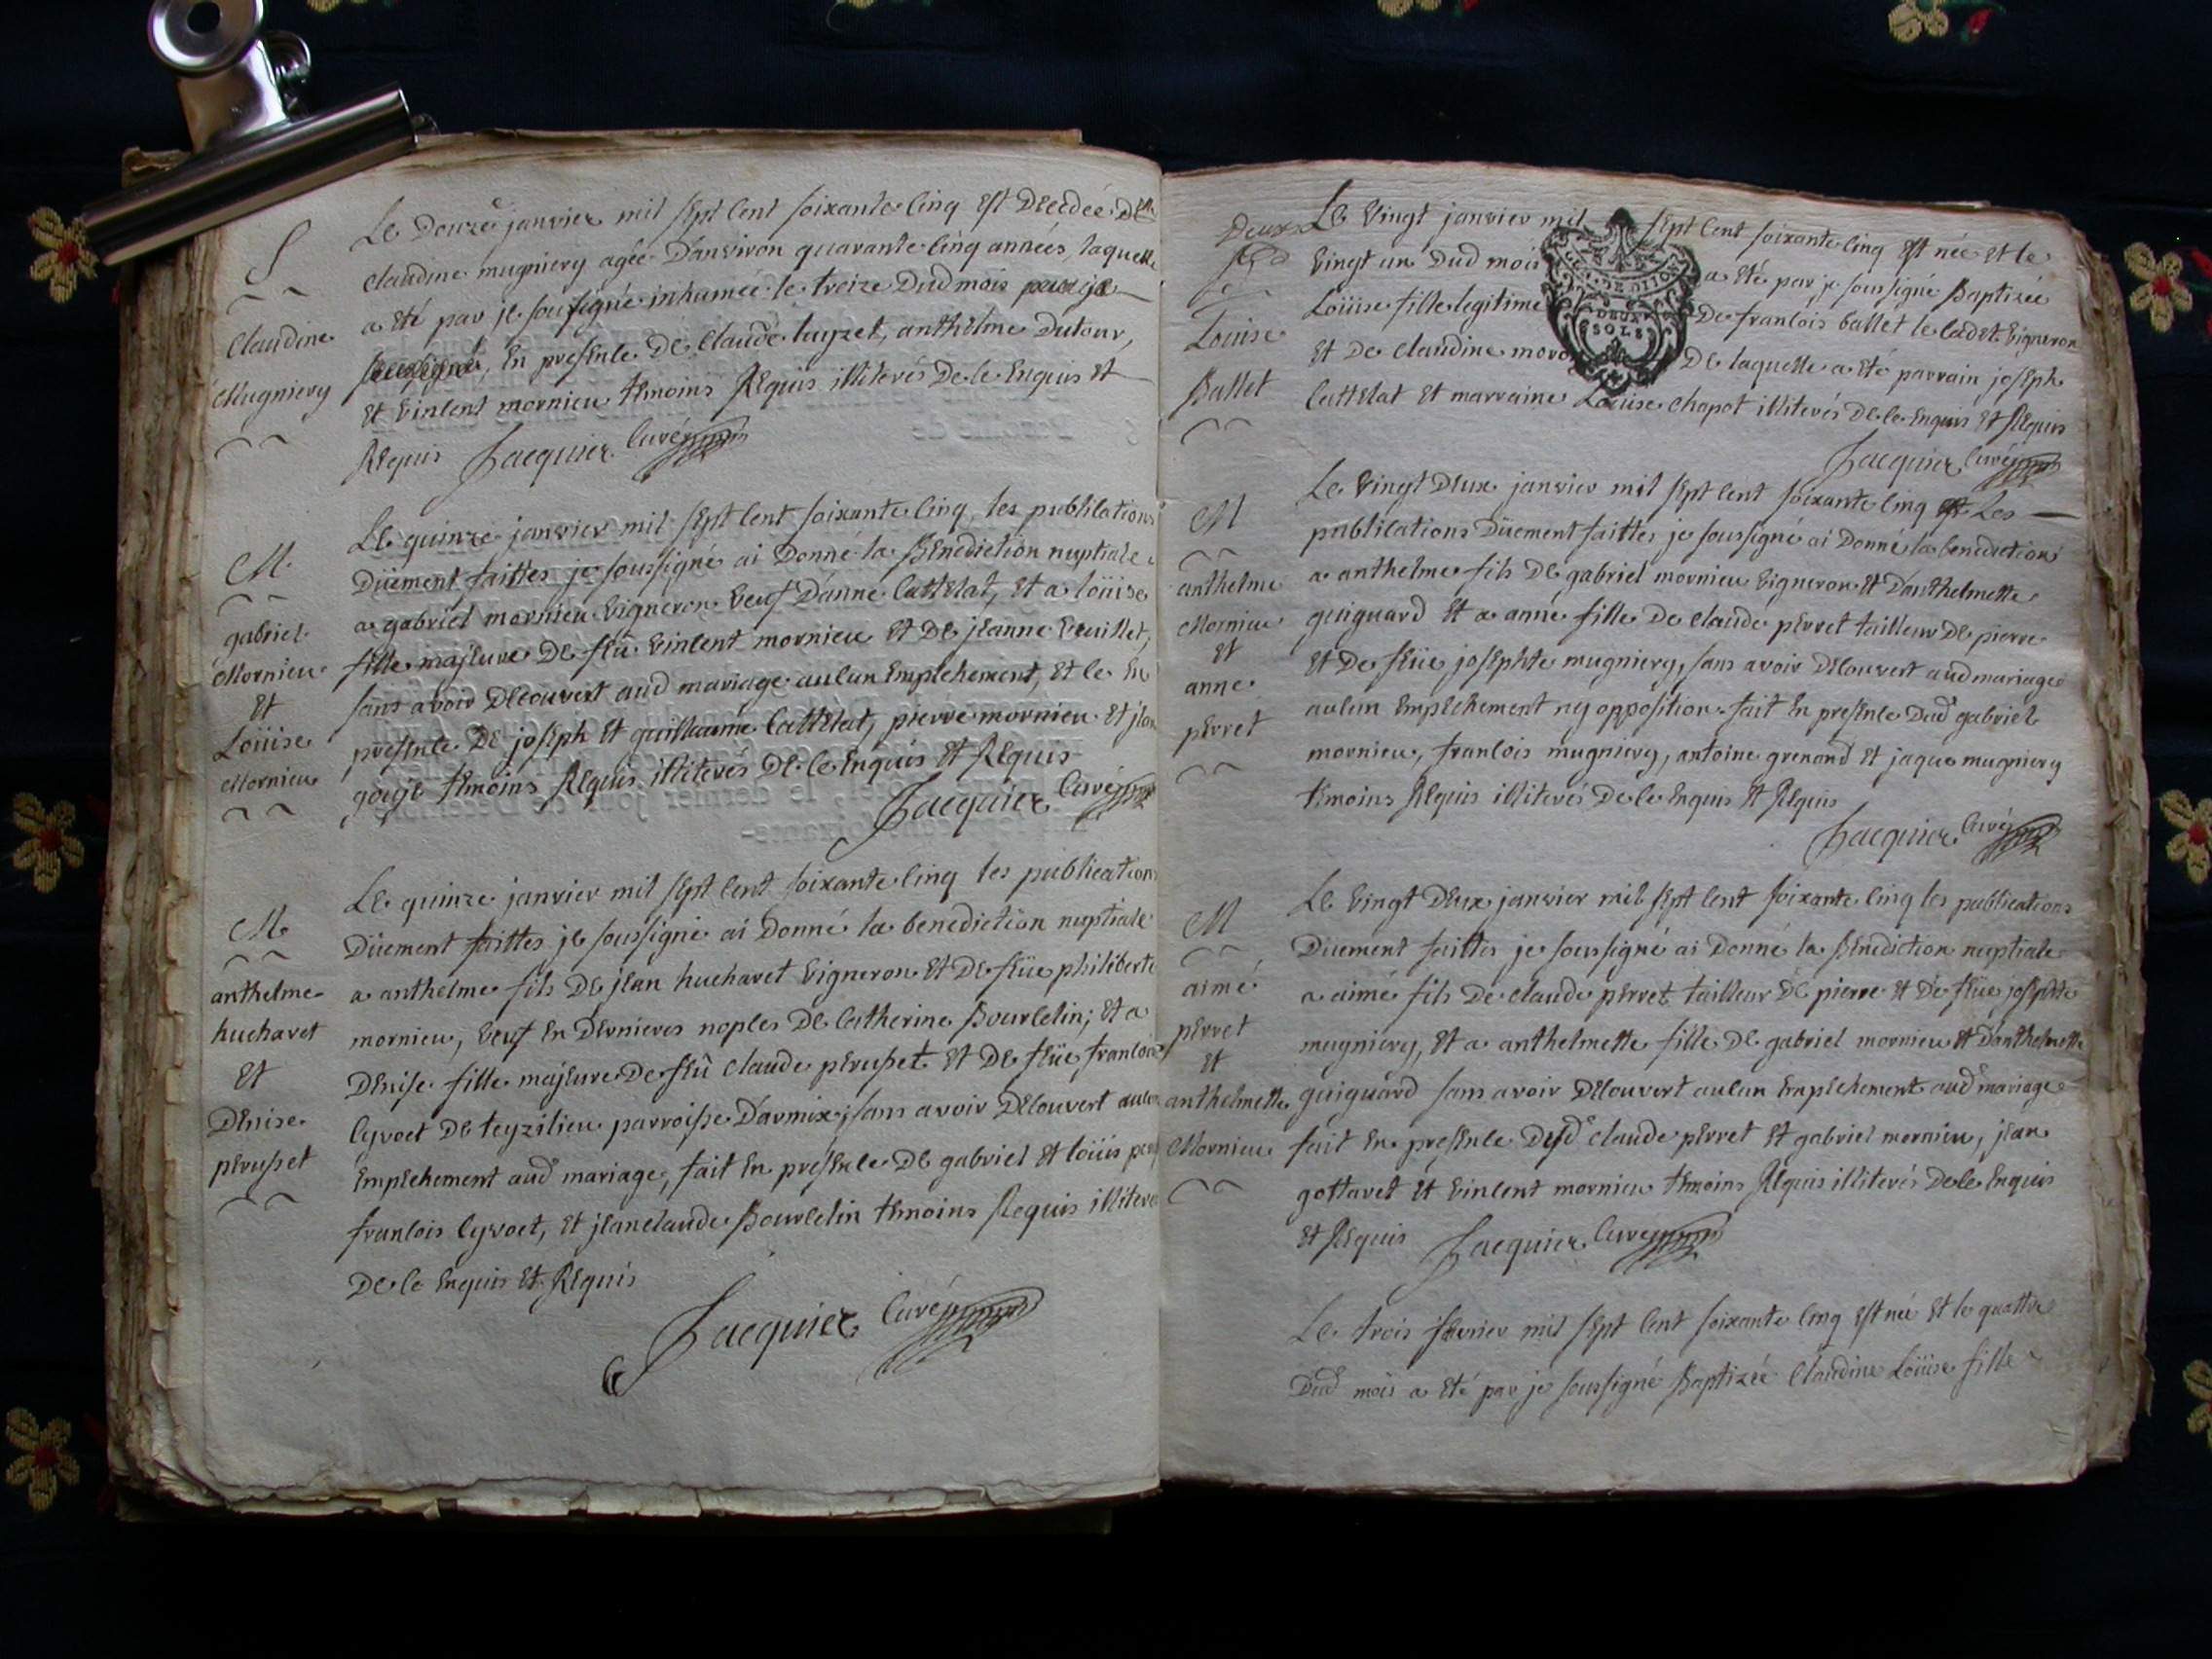 S
Claudine
Mugniery
Le Douze janvier mil sept cent soixante cinq est Decedée Delle
claudine mugniery agée D'anviron quarante cinq années, laquelle
a eté par je soussigné inhumée le treize Dud mois
En presence De Claude luyzet, anthelme Dutour,
et vincent mornieu temoins Requis illiterés De ce Enquis et
Requis Jacquier Curé
M
gabriel
Mornieu
et
Loüise
Mornieu
Le quinze janvier mil sept cent soixante cinq les publications
Düement faittes je soussigné ai Donné la Benediction nuptiale
a gabriel mornieu vigneron veuf D'anne Cattelat, et a loüise
fille majeure De feû vincent mornieu et De jeanne
sans avoir Decouvert aud mariage aucun Empechement, et ce En
presence De joseph et guillaume Cattelat, pierre mornieu et jean
gouje temoins Requis illiterés De ce Enquis et Requis
Jacquier Curé
M
anthelme
hucharet
et
Denise
perusset
Le quinze janvier mil sept cent soixante cinq les publications
Düement faittes je soussigné ai Donné la benediction nuptiale
a anthelme fils De jean hucharet vigneron et De feüe philiberte
mornieu, veuf En Dernieres noples De Catherine Bourcelin; et a
Denise fille majeure De feû claude perusset et De feüe francoise
Cyvoct De teyzilieu parroisse D'armix; sans avoir Decouvert aucun
Empechement aud mariage, fait En presence De gabriel et loüis
francois Cyvoct, et jeanclaude Bourcelin temoins Requis illiteres
De ce Enquis et Requis
Jacquier Curé
Deux
Louise
Ballet
GEN. DE DIJON
DEUX
SOLS
Le vingt janvier mil sept cent soixante cinq est née et le
vingt un Dud mois a eté par je soussigné Baptizée
Loüise fille legitime De francois ballet le cadet vigneron
et De claudine De laquelle a eté parrain joseph
Cattelat et marraine Louise chapot illiterés De ce Enquis et Requis
Jacquier Curé
M
anthelme
Mornieu
et
anne
perret
Le vingt Deux janvier mil sept cent soixante cinq Les
publications Düement faittes je soussigné ai Donné la benediction
a anthelme fils De gabriel mornieu vigneron et D'anthelmette
guiguard et a anne fille De claude perret tailleur De pierre
et De feüe josephte mugniery, sans avoir Decouvert aud mariage
aucun Empechement ny opposition. fait En presence Dud gabriel
mornieu, francois mugniery, antoine grenand et jaque mugniery
temoins Requis illiterés De ce Enquis et Requis
Jacquier Curé
M
aimé
perret
et
anthelmette
Mornieu
Le vingt Deux janvier mil sept cent soixante cinq les publications
Düement faittes je soussigné ai Donné la Benediction nuptiale
a aimé fils De claude perret tailleur De pierre et De feüe josephte
mugniery, et a anthelmette fille De gabriel mornieu et D'anthelmette
guiguard sans avoir Decouvert aucun Empechement aud mariage
fait En presence Dud claude perret et gabriel mornieu, jean
gottaret et vincent mornieu temoins Requis illiterés De ce Enquis
et Requis Jacquier Curé
Le trois fevrier mil sept cent soixante cinq est née et le quattre
Dud mois a eté par je soussigné Baptizée Claudine Loüise fille